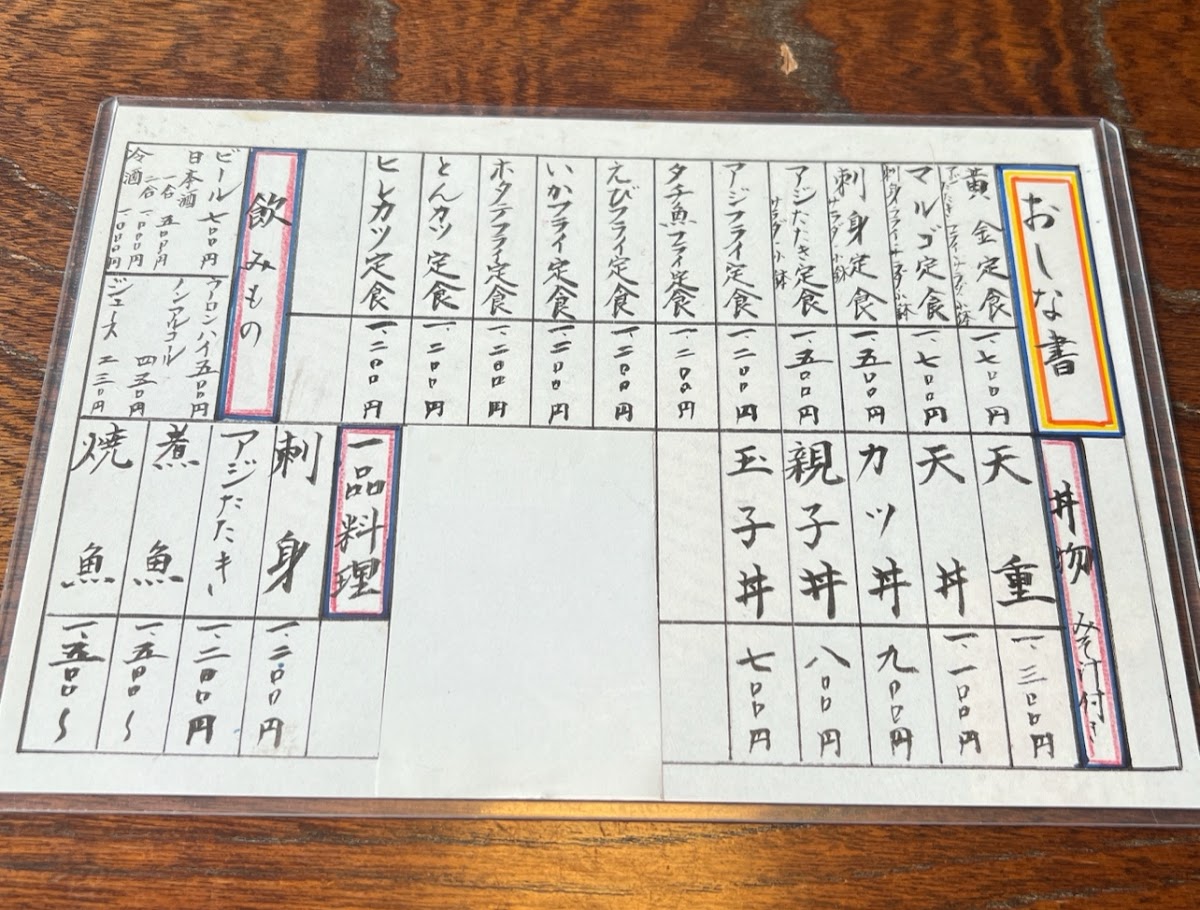 おしな書
黄金定食
一、七〇〇円
マルゴ定食
刺身・フライ・サラダ・小鉢
一、七〇〇円
刺身定食
サラダ・小鉢
一、五〇〇円
アジたたき定食
サラダ・小鉢
一、五〇〇円
アジフライ定食
一、二〇〇円
タチ魚フライ定食
一、二〇〇円
えびフライ定食
一、二〇〇円
いかフライ定食
一、二〇〇円
ホタテフライ定食
一、二〇〇円
とんカツ定食
一、二〇〇円
ヒレカツ定食
一、二〇〇円
飲みもの
ビール 七〇〇円
日本酒
一合 五〇〇円
二合 一、〇〇〇円
冷酒 一、〇〇〇円
ウーロンハイ 五〇〇円
ノンアルコール 四五〇円
ジュース 二三〇円
丼物 みそ汁付き
天重
一、三〇〇円
天丼
一、一〇〇円
カツ丼
九〇〇円
親子丼
八〇〇円
玉子丼
七〇〇円
一品料理
刺身
一、二〇〇円
アジたたき
一、二〇〇円
煮魚
一、五〇〇〜
焼魚
一、五〇〇〜